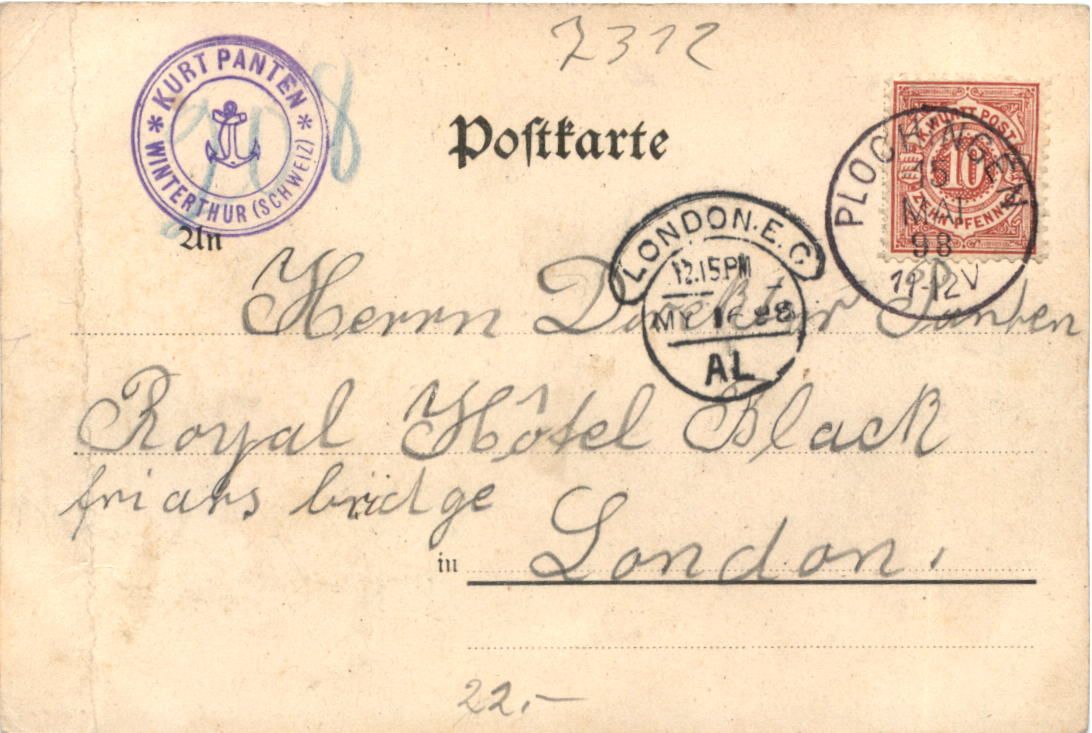 7312
* KURT PANTEN *
WINTERTHUR (SCHWEIZ)
Postkarte
K. WÜRTT. POST
10
ZEHN PFENNIG
PLOCHINGEN
15
MAI
98
11-12V
LONDON.E.C
12.15PM
MY 16 98
AL
An
Herrn Direktor Panten
Royal Hôtel Black
friars bridge
in London.
22,-